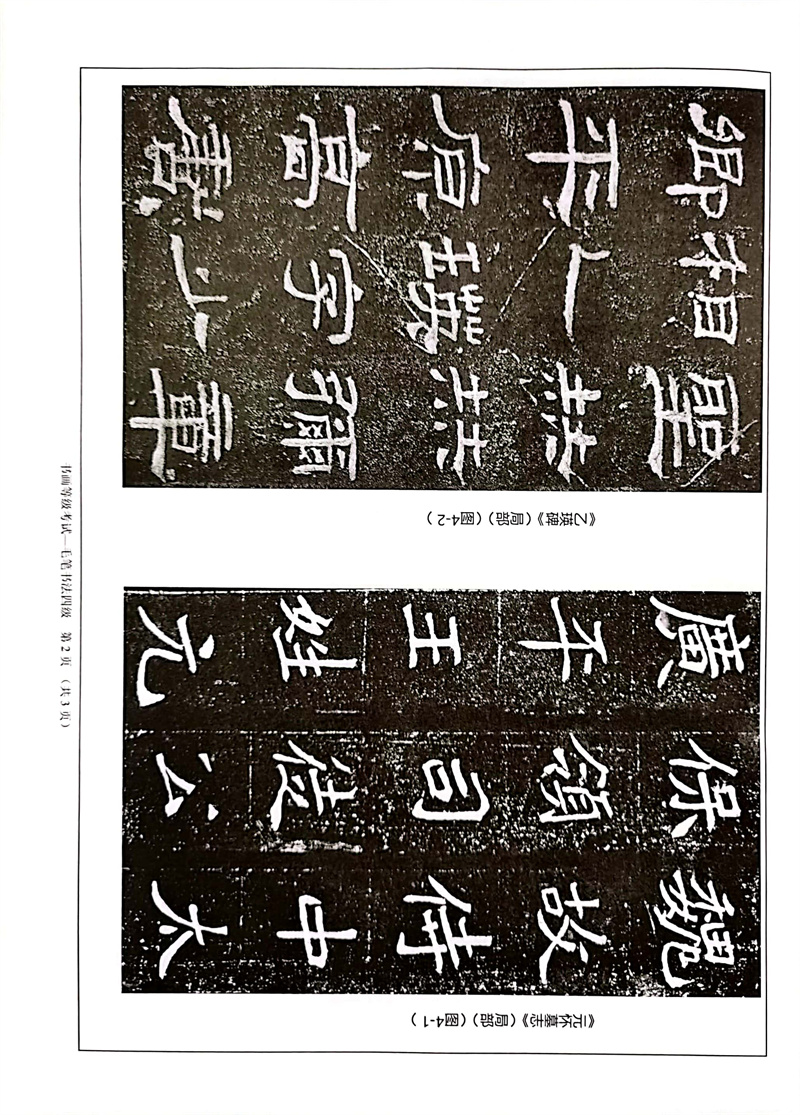 魏故侍中太
保領司徒公
廣平王姓元
《元怀墓志》（局部）（图4-1）
聖赫赫彌章
相乙瑛字少
卿平原高唐
《乙瑛碑》（局部）（图4-2）
书画等级考试—毛笔书法四级 第 2 页 （共 3 页）